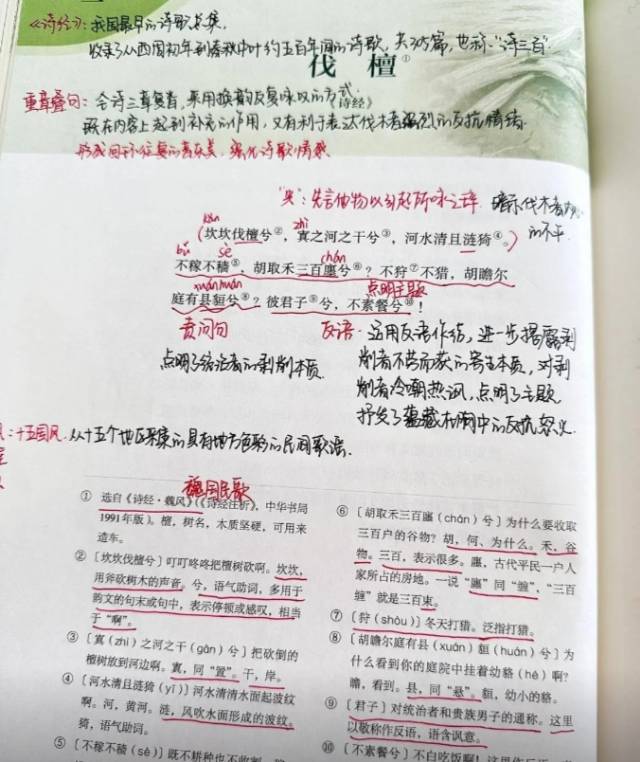 《诗经》：我国最早的诗歌总集，
收录了从西周初年到春秋中叶约五百年间的诗歌，共305篇，也称"诗三百"
伐檀①
《诗经》
重章叠句：全诗三章复沓，采用换韵反复咏叹的方式
既在内容上起到补充的作用，又有利于表达伐木者强烈的反抗情绪
形成回环往复的音乐美，强化诗歌情感
"兴"：先言他物以引起所咏之辞
暗示伐木者内心
的不平
kǎn
zhì
（坎坎伐檀兮②，寘之河之干兮③，河水清且涟猗④。）
sè
chán
不稼不穑⑤，胡取禾三百廛兮⑥？不狩⑦不猎，胡瞻尔
xuán huán
点明主题
庭有县貆兮⑧？彼君子⑨兮，不素餐兮⑩！
责问句
反语：运用反语作结，进一步揭露剥
点明了统治者的剥削本质
削者不劳而获的寄生本质，对剥
削者冷嘲热讽，点明了主题
抒发了蕴藏在胸中的反抗怒火
：十五国风，从十五个地区采集的具有地方色彩的民间歌谣。
魏国民歌
① 选自《诗经·魏风》（《诗经注析》，中华书局
1991年版）。檀，树名，木质坚硬，可用来
造车。
② 〔坎坎伐檀兮〕叮叮咚咚把檀树砍啊。坎坎，
用斧砍树木的声音。兮，语气助词，多用于
韵文的句末或句中，表示停顿或感叹，相当
于"啊"。
③ 〔寘（zhì）之河之干（gān）兮〕把砍倒的
檀树放到河边啊。寘，同"置"。干，岸。
④ 〔河水清且涟猗（yī）〕河水清清水面起波纹
啊。河，黄河。涟，风吹水面形成的波纹。
猗，语气助词。
⑤ 〔不稼不穑（sè）〕既不耕种也不收割
⑥ 〔胡取禾三百廛（chán）兮〕为什么要收取
三百户的谷物？胡，何、为什么。禾，谷
物。三百，表示很多。廛，古代平民一户人
家所占的房地。一说"廛"同"缠"，"三百
缠"就是三百束。
⑦ 〔狩（shòu）〕冬天打猎。泛指打猎。
⑧ 〔胡瞻尔庭有县（xuán）貆（huán）兮〕为
什么看到你的庭院中挂着幼貉（hé）啊？
瞻，看到。县，同"悬"。貆，幼小的貉。
⑨ 〔君子〕对统治者和贵族男子的通称。这里
以敬称作反语，语含讽意。
⑩ 〔不素餐兮〕不白吃饭啊！